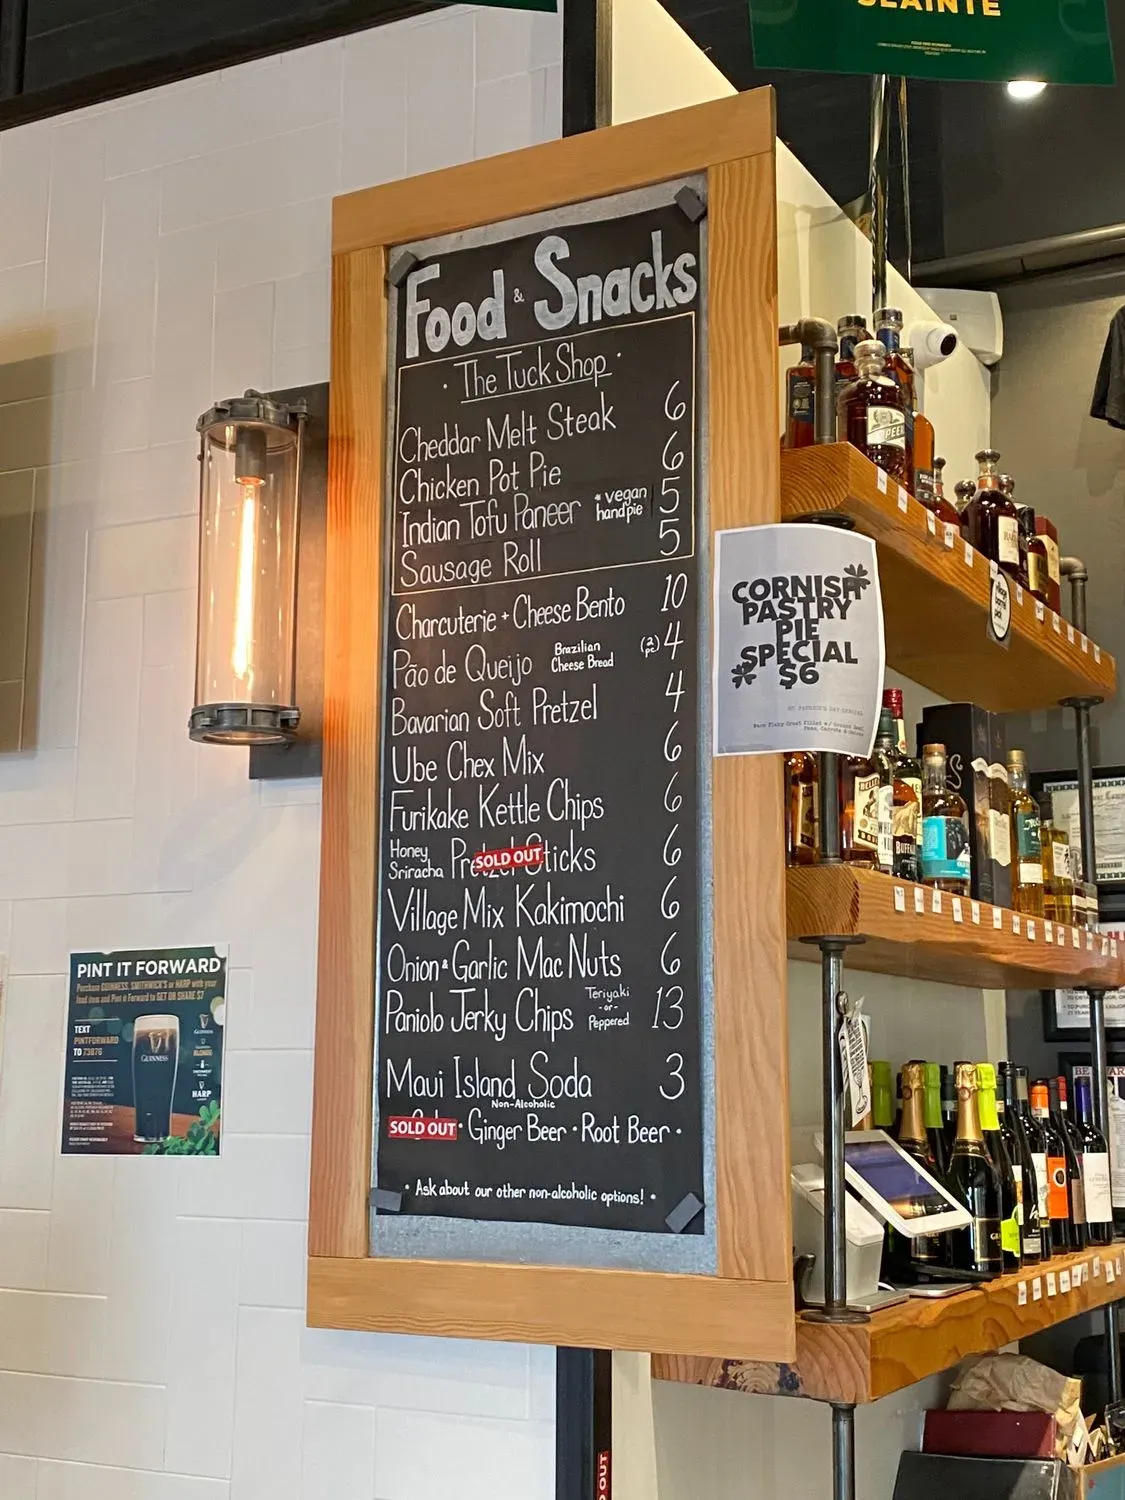 SLAINTE
Food & Snacks
· The Tuck Shop ·
Cheddar Melt Steak 6
Chicken Pot Pie 6
Indian Tofu Paneer * vegan handpie 5
Sausage Roll 5
Charcuterie + Cheese Bento 10
Pão de Queijo Brazilian Cheese Bread (2 pc) 4
Bavarian Soft Pretzel 4
Ube Chex Mix 6
Furikake Kettle Chips 6
Honey Sriracha Pretzel Sticks 6
SOLD OUT
Village Mix Kakimochi 6
Onion & Garlic Mac Nuts 6
Paniolo Jerky Chips Teriyaki -or- Peppered 13
Maui Island Soda 3
Non-Alcoholic
SOLD OUT · Ginger Beer · Root Beer ·
· Ask about our other non-alcoholic options! ·
CORNISH
PASTRY
PIE
SPECIAL
$6
ST PATRICK'S DAY SPECIAL
PINT IT FORWARD
Purchase GUINNESS, SMITHWICK'S or HARP with your
food item and Pint it Forward to GET OR SHARE $7
TEXT
PINTFORWARD
TO 73876
GUINNESS
GUINNESS
BLONDE
HARP
BUFFALO
OUT